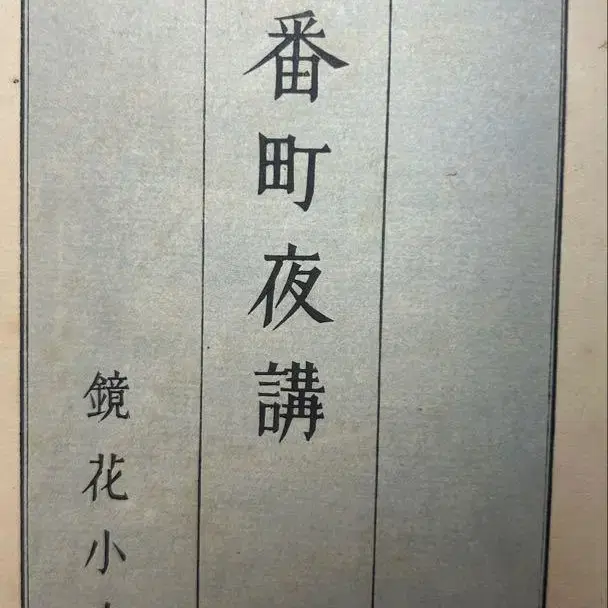 番町夜講
鏡花小